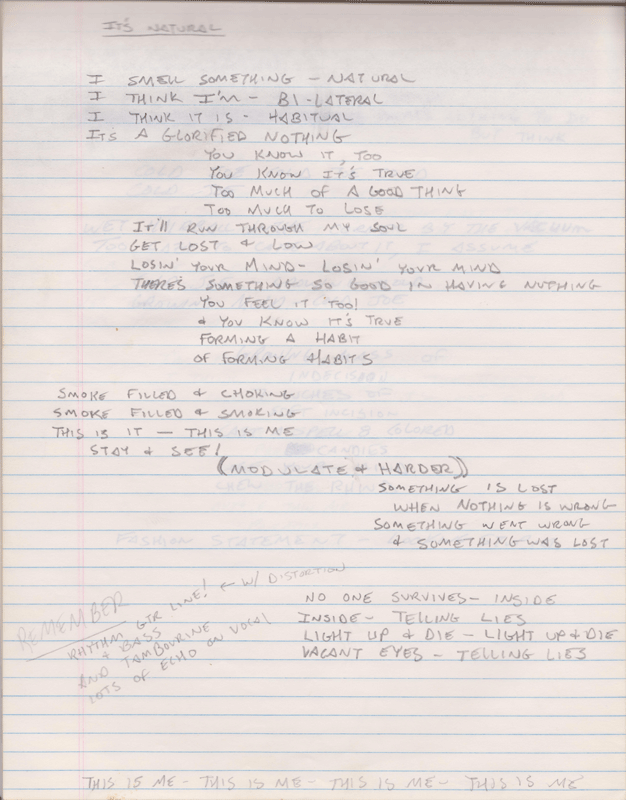 IT'S NATURAL
I SMELL SOMETHING - NATURAL
I THINK I'M - BI-LATERAL
I THINK IT IS - HABITUAL
IT'S A GLORIFIED NOTHING
YOU KNOW IT, TOO
YOU KNOW IT'S TRUE
TOO MUCH OF A GOOD THING
TOO MUCH TO LOSE
IT'LL RUN THROUGH MY SOUL
GET LOST & LOW
LOSIN' YOUR MIND - LOSIN' YOUR MIND
THERE'S SOMETHING SO GOOD IN HAVING NOTHING
YOU FEEL IT TOO!
& YOU KNOW IT'S TRUE
FORMING A HABIT
OF FORMING HABITS
SMOKE FILLED & CHOKING
SMOKE FILLED & SMOKING
THIS IS IT — THIS IS ME
STAY & SEE!
((MODULATE & HARDER))
SOMETHING IS LOST
WHEN NOTHING IS WRONG
SOMETHING WENT WRONG
& SOMETHING WAS LOST
NO ONE SURVIVES - INSIDE
INSIDE - TELLING LIES
LIGHT UP & DIE - LIGHT UP & DIE
VACANT EYES - TELLING LIES
REMEMBER
RHYTHM GTR LINE! ← W/ DISTORTION
+ BASS
AND TAMBOURINE
LOTS OF ECHO ON VOCAL
THIS IS ME - THIS IS ME - THIS IS ME - THIS IS ME